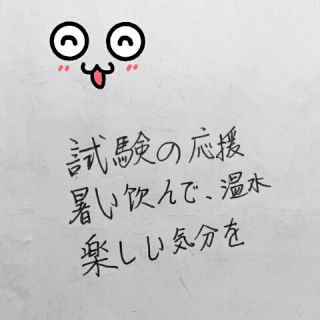 試験の応援
暑い飲んで、温水
楽しい気分を